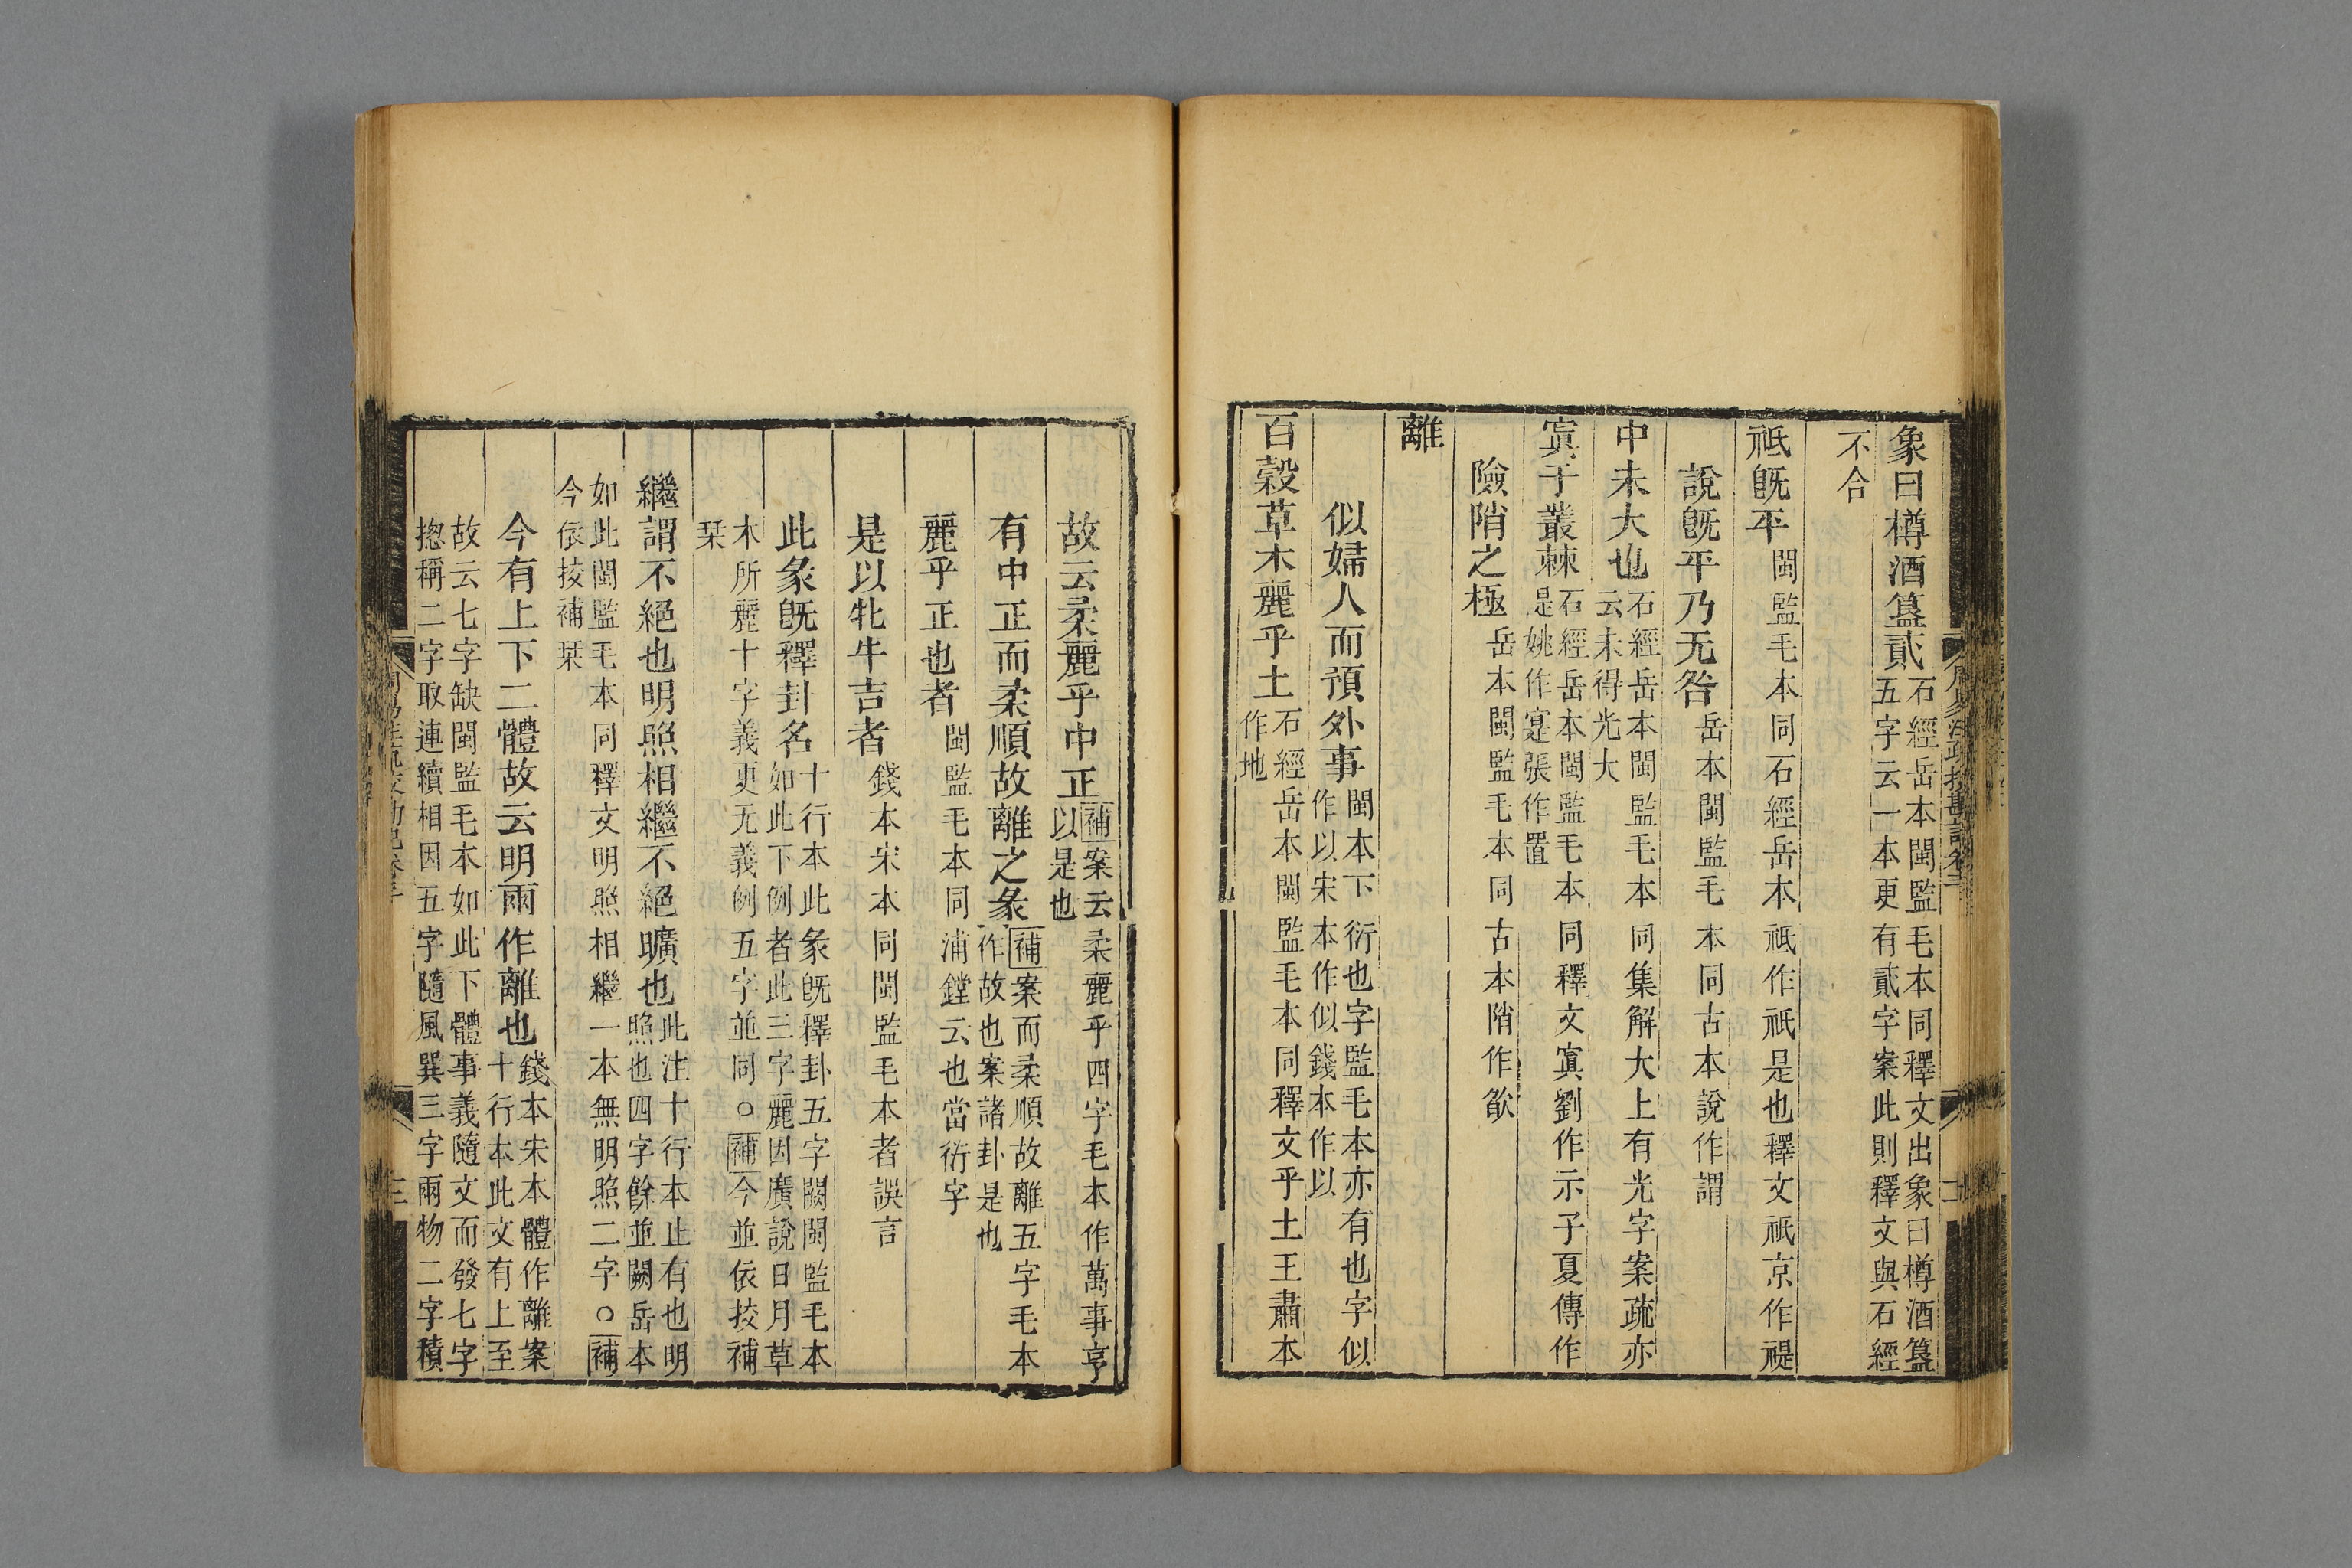 象曰樽酒簋貳石經岳本閩監毛本同釋文出象曰樽酒簋
五字云一本更有貳字案此則釋文與石經
不合
祇旣平閩監毛本同石經岳本祗作祇是也釋文祇京作禔
說旣平乃无咎岳本閩監毛本同古本說作謂
中未大也石經岳本閩監毛本同集解大上有光字案疏亦
云未得光大
寘于叢棘石經岳本閩監毛本同釋文寘劉作示子夏傳作
是姚作寔張作置
險陗之極岳本閩監毛本同古本陗作欿
離
似婦人而預外事閩本下衍也字監毛本亦有也字似
作以宋本作似錢本作以
百穀草木麗乎土石經岳本閩監毛本同釋文乎土王肅本
作地
故云柔麗乎中正補案云柔麗乎四字毛本作萬事亨
以是也
有中正而柔順故離之彖補案而柔順故離五字毛本
作故也案諸卦是也
麗乎正也者閩監毛本同浦鏜云也當衍字
是以牝牛吉者錢本宋本同閩監毛本者誤言
此彖旣釋卦名十行本此彖旣釋卦五字闕閩監毛本
如此下例者此三字麗因廣說日月草
木所麗十字義更无義例五字並同○補今並依挍補
栞
繼謂不絕也明照相繼不絕曠也此注十行本止有也明
照也四字餘並闕岳本
如此閩監毛本同釋文明照相繼一本無明照二字○補
今依挍補栞
今有上下二體故云明兩作離也錢本宋本體作離案
十行本此文有上至
故云七字缺閩監毛本如此下體事義隨文而發七字
揔稱二字取連續相因五字隨風巽三字兩物二字積